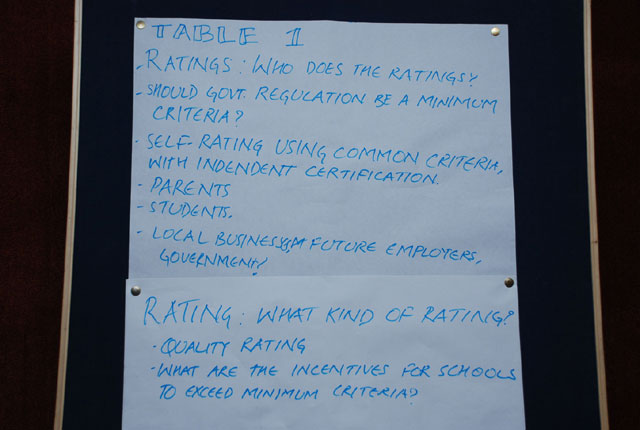 TABLE 1
- RATINGS: WHO DOES THE RATINGS?
- SHOULD GOVT. REGULATION BE A MINIMUM
CRITERIA?
- SELF-RATING USING COMMON CRITERIA,
WITH INDENDENT CERTIFICATION.
- PARENTS
- STUDENTS.
- LOCAL BUSINESS FUTURE EMPLOYERS,
GOVERNMENT?
RATING: WHAT KIND OF RATING?
- QUALITY RATING
- WHAT ARE THE INCENTIVES FOR SCHOOLS
TO EXCEED MINIMUM CRITERIA?